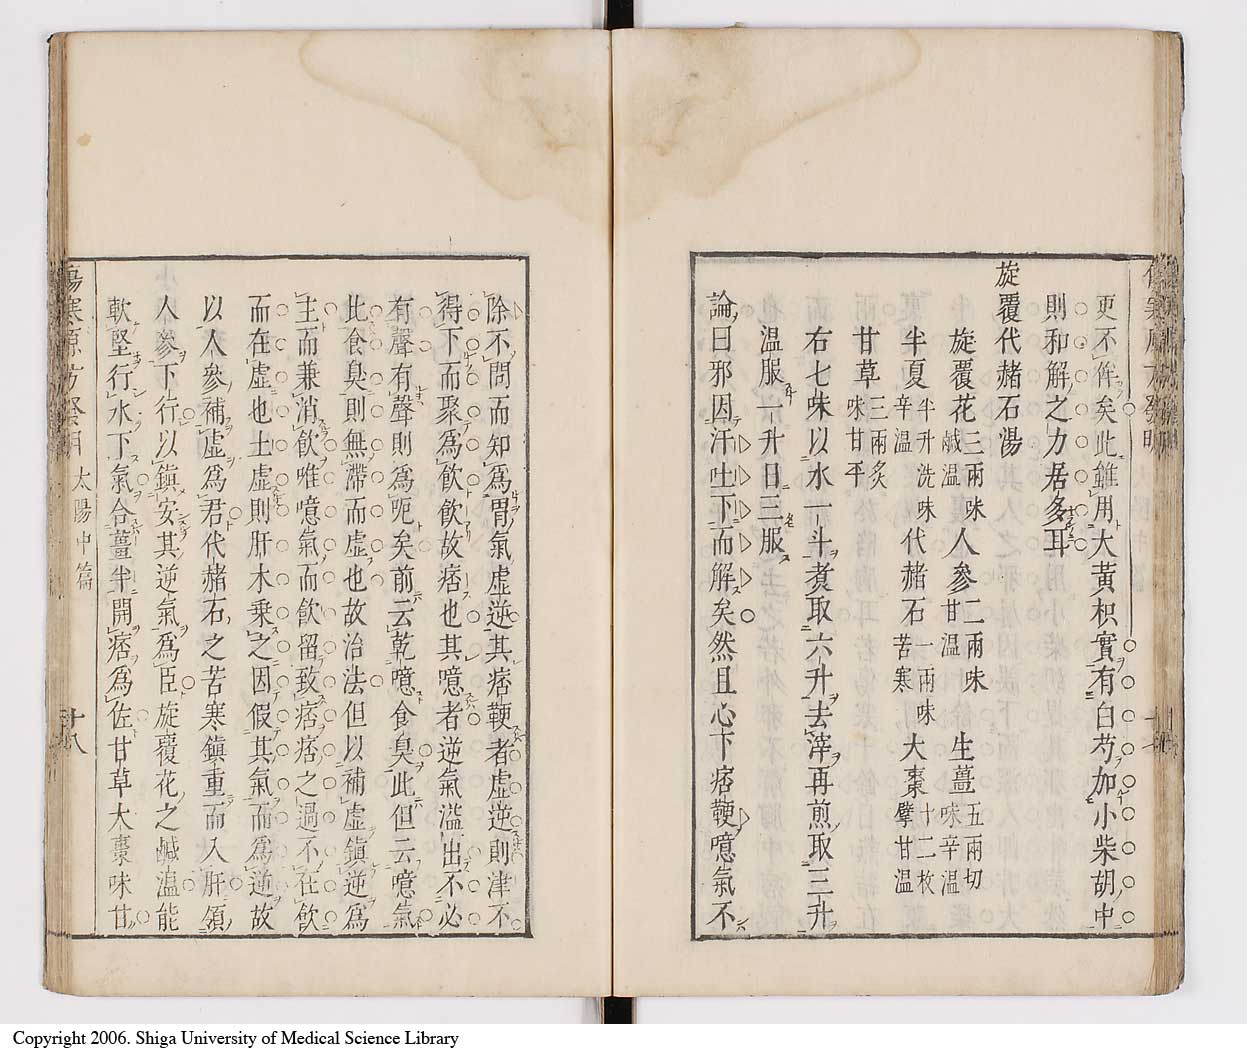 更不侔矣此雖用大黃枳實有白芍加小柴胡中
則和解之力居多耳
旋覆代赭石湯
旋覆花三兩味鹹溫 人參二兩味甘溫 生薑五兩切味辛溫
半夏半升洗味辛溫 代赭石一兩味苦寒 大棗十二枚擘甘溫
甘草三兩炙味甘平
右七味以水一斗煮取六升去滓再煎取三升
溫服一升日三服
論曰邪因汗吐下而解矣然且心下痞鞕噫氣不
除不問而知為胃氣虛逆其痞鞕者虛逆則津不
得下而聚為飲飲故痞也其噫者逆氣溢出不必
有聲有聲則為呃矣前云乾噫食臭此但云噫氣
此食臭則無滯而虛也故治法但以補虛鎮逆為
主而兼消飲唯噫氣而飲留致痞痞之過不在飲
而在虛也土虛則肝木乘之因假其氣而為逆故
以人參補虛為君代赭石之苦寒鎮重而入肝領
人參下行以鎮安其逆氣為臣旋覆花之鹹溫能
軟堅行水下氣合薑半開痞為佐甘草大棗味甘
傷寒原方發明 太陽中篇 十八
Copyright 2006. Shiga University of Medical Science Library